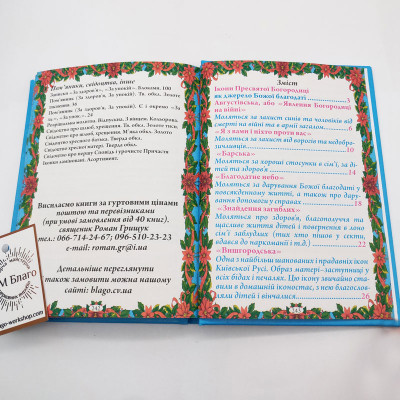 Пом'яники, свідоцтва, інше
Записки «За здоров'я», «За упокій». Блоками. 100
Пом'яник (За здоров'я, За упокій). Тв. обкл. Золоте
тиснення. 36
Пом'яник (За здоров'я, За упокій). Є і окремо «За
24
Свідоцтво про шлюб, хрещення. Тв. обкл. Золоте тисн.
Свідоцтво про шлюб, хрещення. М'яка обкл. Золото
Свідоцтво хресного батька. Тверда обкл.
Свідоцтво хресної матері. Тверда обкл.
Свідоцтво про першу Сповідь і урочисте Причастя
Іконки ламіновані. Асортимент.
Висилаємо книги за гуртовими цінами
поштою та перевізниками
(при умові замовлення від 40 книг).
священик Роман Грищук
тел.: 066-714-24-67; 096-510-23-23
e-mail: roman.gr@i.ua
Детальніше переглянути
також замовити можна нашому
сайті: blago.cv.ua
М Благо
Зміст
Ікони Пресвятої Богородиці
як джерело Божої благодаті 3
Августівська, або «Явлення Богородиці
на війні»
Моляться за захист синів та чоловіків від
смерті на війні та в армії загалом. 6
«Я з вами і ніхто проти вас»
Моляться за захист від ворогів та недобро-
«Барська»
Моляться за хороші стосунки в сім'ї, за ді-
тей та здоров'я 14
«Благодатне небо»
Моляться за дарування Божої благодаті у
повсякденному житті, а також про дару-
вання допомоги у справах 18
«Знайдення загиблих»
Моляться про здоров'я, благополуччя та
щасливе життя дітей і повернення в ло-
но сім'ї заблудлих (тих хто пішов у секти,
вдався до наркоманії і т.д.) 22
«Вишгородська»
Одна з найбільш шанованих і прадавніх ікон
Київської Русі. Образ матері-заступниці у
всіх бідах і печалях. Цю ікону звичайно ста-
вили в домашній іконостас, з нею благослов-
ляли дітей і вінчалися. 26